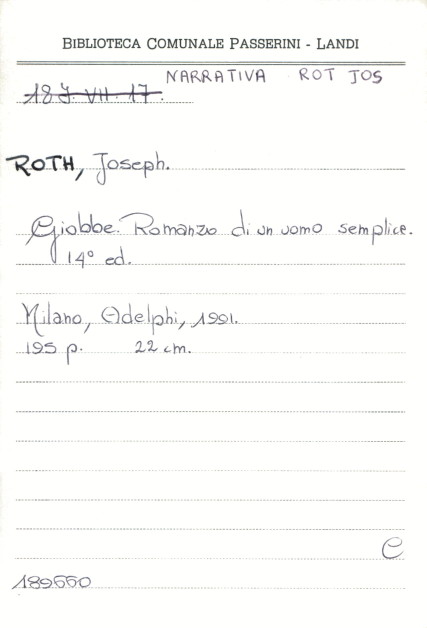 BIBLIOTECA COMUNALE PASSERINI - LANDI
NARRATIVA ROT JOS
18 J. VII. 17.
ROTH, Joseph.
Giobbe. Romanzo di un uomo semplice.
14° ed.
Milano, Adelphi, 1991.
195 p. 22 cm.
C
189550